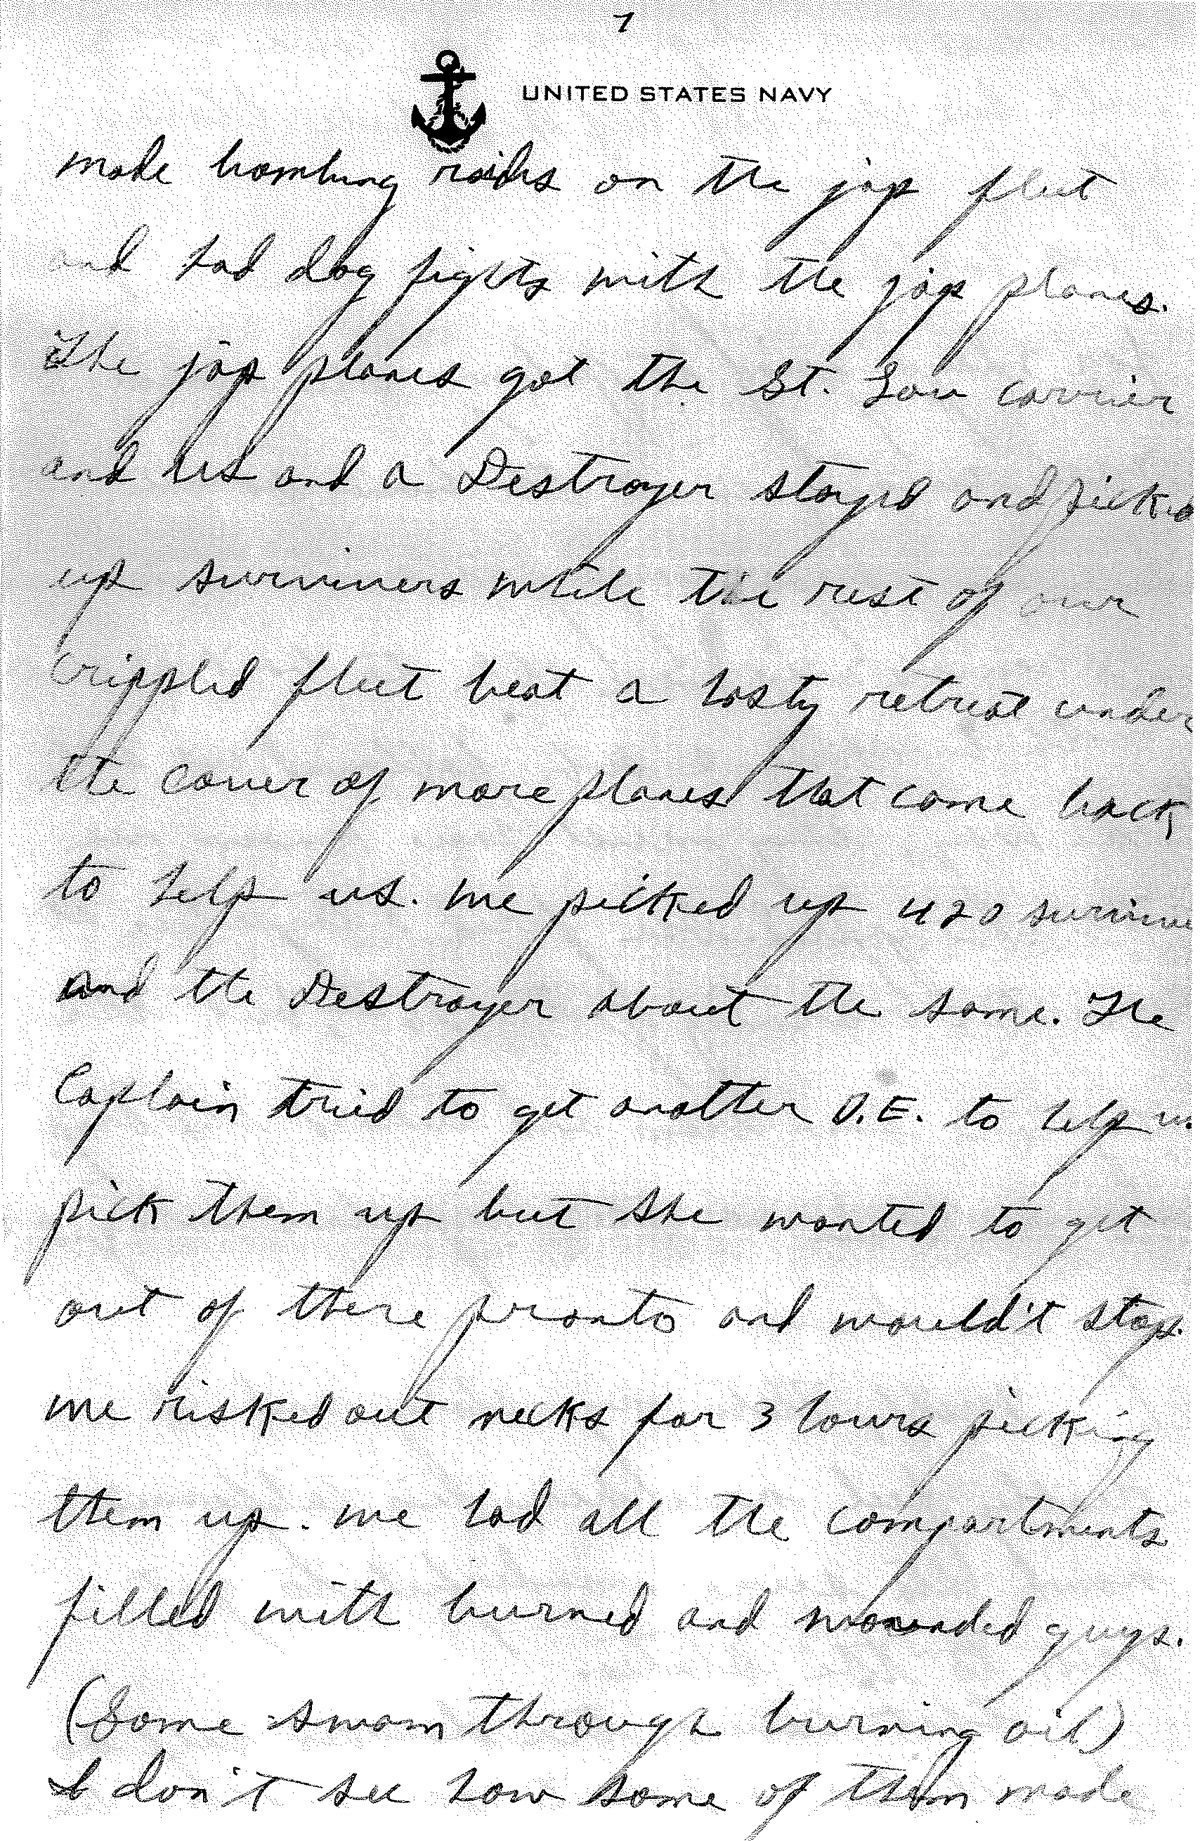 7
UNITED STATES NAVY
made bombing raids on the jap fleet
and had dog fights with the jap planes.
The jap planes got the St. Lou carrier
and us and a Destroyer stayed and picked
up surviuers while the rest of our
crippled fleet beat a hasty retreat under
the cover of more planes that came back
to help us. we picked up 420
and the Destroyer about the same. The
Captain tried to get another D.E. to help us
pick them up but she wanted to get
out of there pronto and would't stop.
we risked out necks for 3 hours picking
them up. we had all the compartments
filled with burned and wounded guys.
(Some swam through burning oil)
I don't see how some of them made